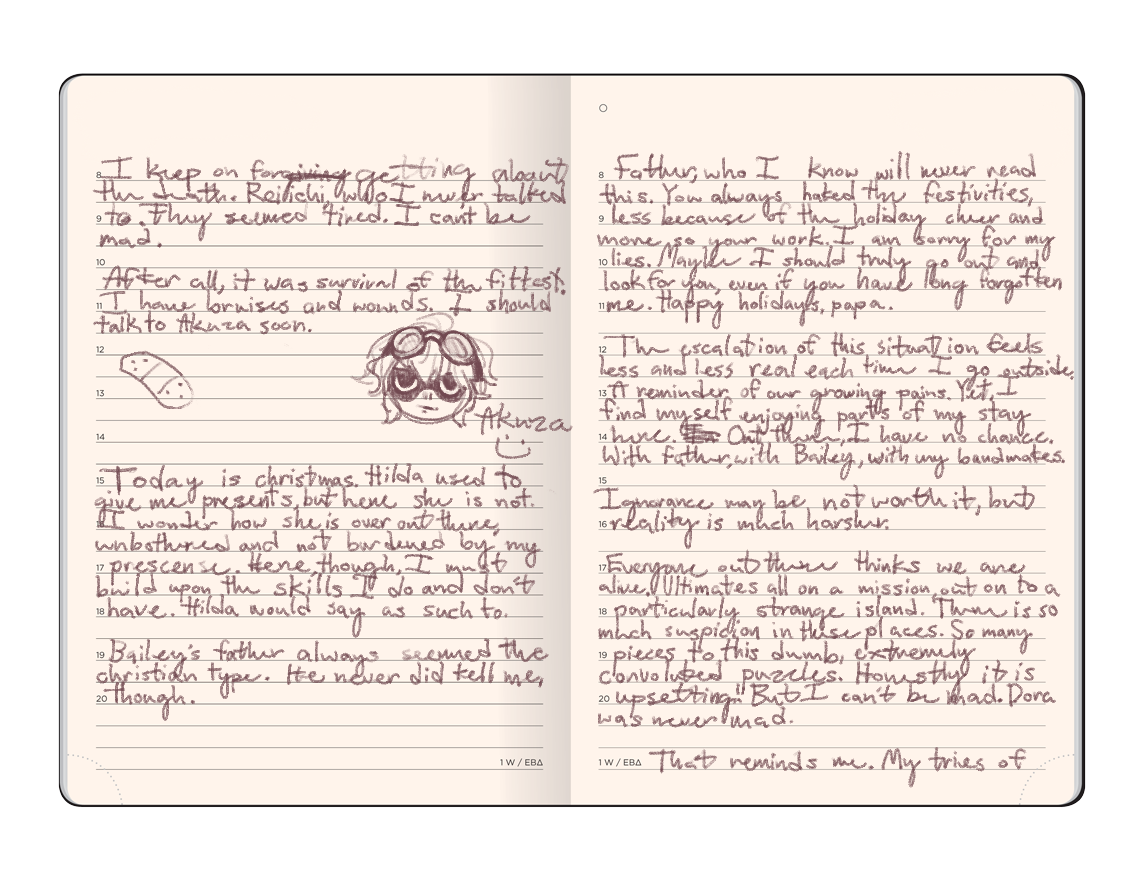 I keep on forgiving getting about
the death. Roiichi who I never talked
to. They seemed tired. I can't be
mad.
After all, it was survival of the fittest.
I have bruises and wounds. I should
talk to Akuza soon.
Akuza
Today is christmas. Hilda used to
give me presents, but here she is not.
I wonder how she is over out there,
unbothered and not burdened by my
prescense. Here, though, I must
build upon the skills I do and don't
have. Hilda would say as such to.
Bailey's father always seemed the
christian type. He never did tell me,
though.
8
9
10
11
12
13
14
15
16
17
18
19
20
1 W / EBΔ
Father, who I know will never read
this. You always hated the festivities,
less because of the holiday cheer and
more so your work. I am sorry for my
lies. Maybe I should truly go out and
look for you, even if you have long forgotten
me. Happy holidays, papa.
The escalation of this situation feels
less and less real each time I go outside.
A reminder of our growing pains. Yet, I
find myself enjoying parts of my stay
here. Out there, I have no chance.
With father, with Bailey, with my bandmates.
Ignorance may be not worth it, but
reality is much harsher.
Everyone out there thinks we are
alive. Ultimates all on a mission out on to a
particularly strange island. There is so
much suspicion in these places. So many
pieces to this dumb, extremely
convoluted puzzles. Honestly it is
upsetting!! But I can't be mad. Dora
was never mad.
That reminds me. My tries of
8
9
10
11
12
13
14
15
16
17
18
19
20
1 W / EBΔ